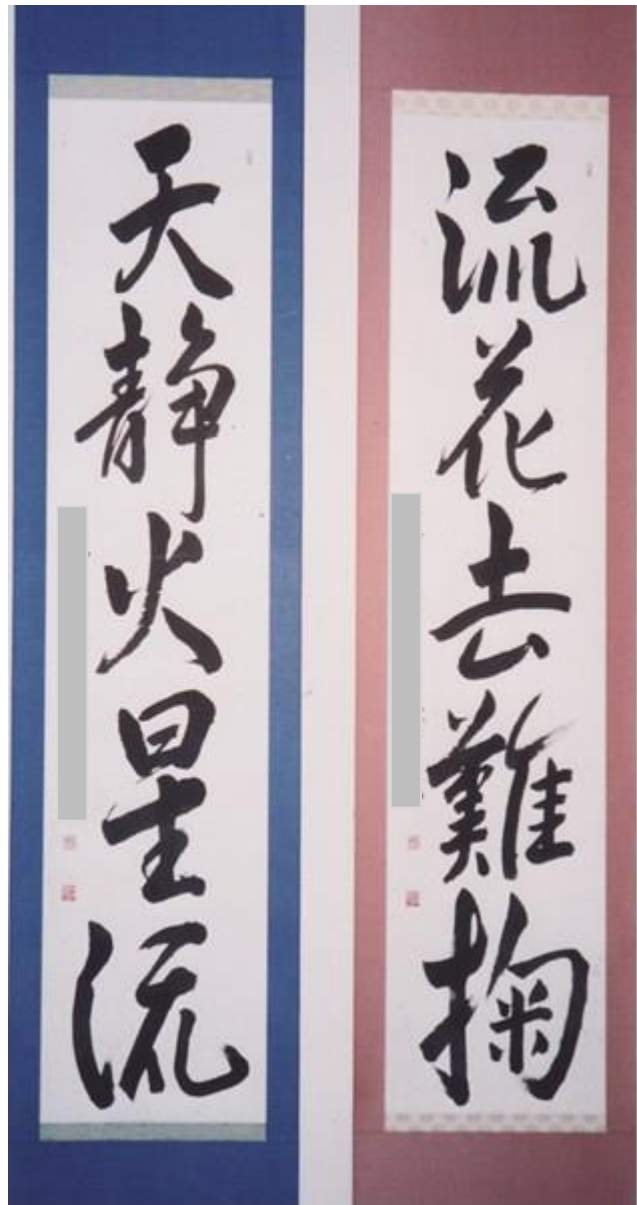 流花去難掬
天静火星流